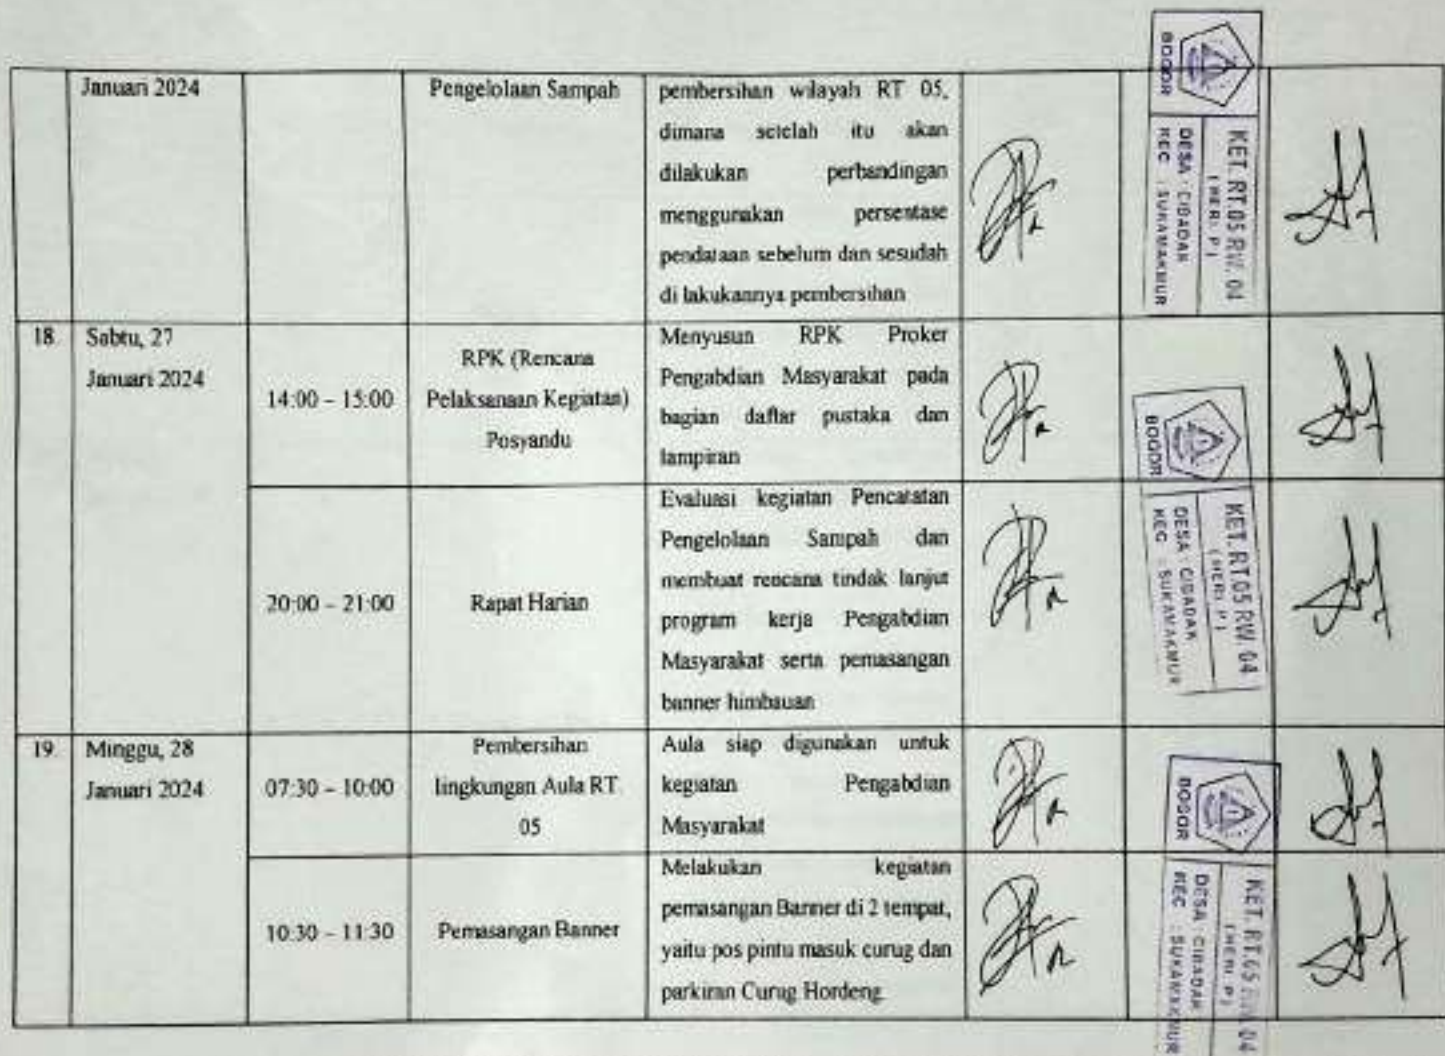 Januari 2024
Pengelolaan Sampah
pembersihan wilayah RT 05,
dimana setelah itu akan
dilakukan perbandingan
menggunakan persentase
pendataan sebelum dan sesudah
di lakukannya pembersihan
BOGOR
KET. RT.05 RW. 04
( HERI. P )
DESA : CIBADAK
KEC : SUKAMAKMUR
18.
Sabtu, 27
Januari 2024
14:00 – 15:00
RPK (Rencana
Pelaksanaan Kegiatan)
Posyandu
Menyusun RPK Proker
Pengabdian Masyarakat pada
bagian daftar pustaka dan
lampiran
20:00 – 21:00
Rapat Harian
Evaluasi kegiatan Pencatatan
Pengelolaan Sampah dan
membuat rencana tindak lanjut
program kerja Pengabdian
Masyarakat serta pemasangan
banner himbauan
BOGOR
KET. RT.05 RW. 04
( HERI. P )
DESA : CIBADAK
KEC : SUKAMAKMUR
19.
Minggu, 28
Januari 2024
07:30 – 10:00
Pembersihan
lingkungan Aula RT.
05
Aula siap digunakan untuk
kegiatan Pengabdian
Masyarakat
10.30 – 11:30
Pemasangan Banner
Melakukan kegiatan
pemasangan Banner di 2 tempat,
yaitu pos pintu masuk curug dan
parkiran Curug Hordeng
BOGOR
KET. RT.05 RW. 04
( HERI. P )
DESA : CIBADAK
KEC : SUKAMAKMUR